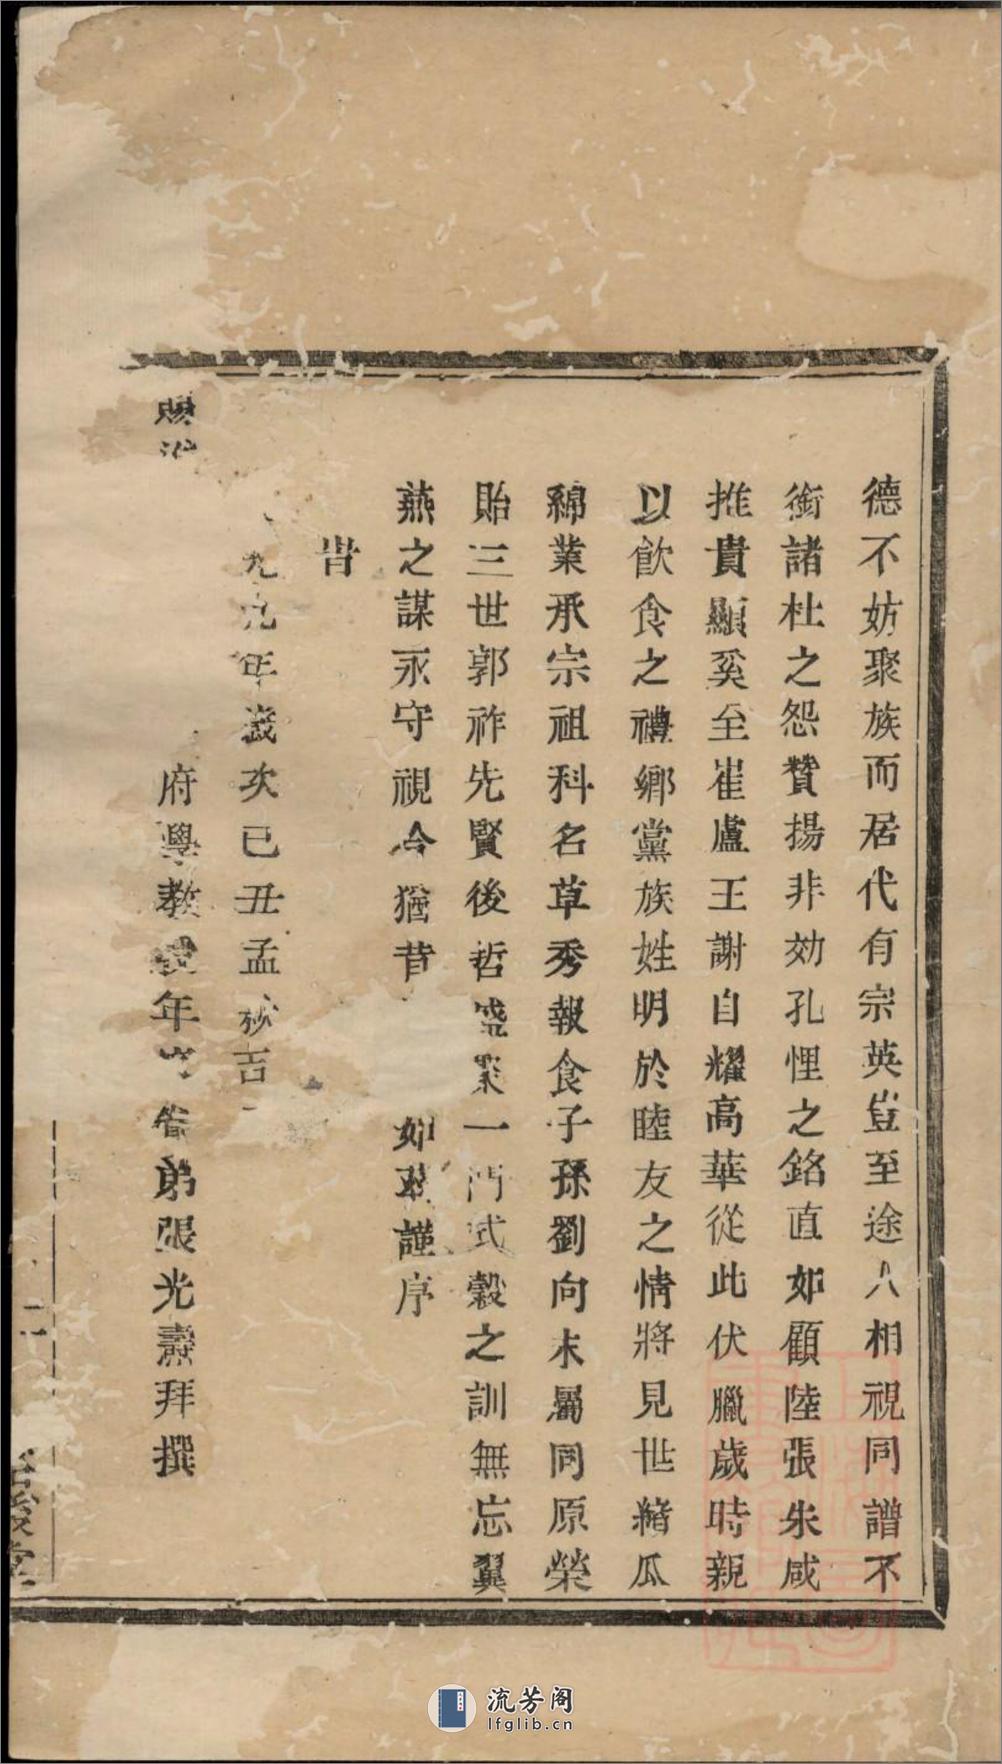 德不妨聚族而居代有宗英豈至途人相視同譜不
銜諸杜之怨贊揚非効孔悝之銘直如顧陸張朱咸
推貴顯奚至崔盧王謝自耀高華從此伏臘歲時親
以飲食之禮鄉黨族姓明於睦友之情將見世緒瓜
綿業承宗祖科名草秀報食子孫劉向末屬同原榮
貽三世郭祚先賢後哲盛業一門式穀之訓無忘翼
燕之謀永守視今猶昔 如 謹序
旹
九年歲次己丑孟秋吉
府學教授年 弟張光燾拜撰
二
堂
流芳阁
lfglib.cn